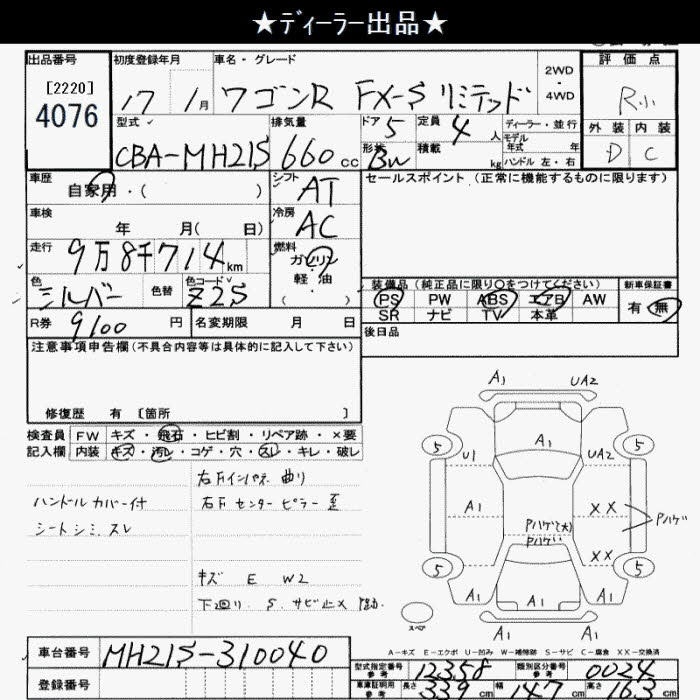 ★ディーラー出品★
出品番号
[2220]
4076
初度登録年月
17 1月
車名・グレード
ワゴンR FX-S リミテッド
2WD
4WD
評価点
R小
外装 内装
D C
型式
CBA-MH21S
排気量
660cc
ドア 5
形状 Bw
定員 4人
積載 kg
ディーラー・並行
モデル年式 年
ハンドル 左・右
車歴
自家用・( )
シフト
AT
セールスポイント(正常に機能するものに限ります)
車検
年 月( 日)
冷房
AC
走行
9万8千714km
燃料
ガソリン
軽・油
( )
色
シルバー
色替
色コード
Z2S
装備品(純正品に限り○をつけてください)
PS PW ABS エアB AW
SR ナビ TV 本革
新車保証書
有・無
R券
9100円
名変期限 月 日
後日品
注意事項申告欄(不具合内容等は具体的に記入して下さい)
修復歴 有 [箇所 ]
検査員記入欄
FW キズ・飛石・ヒビ割・リペア跡・×要
内装 キズ・汚レ・コゲ・穴・スレ・キレ・破レ
ハンドルカバー付
シートシミ、スレ
右Fインパネ 曲り
右F センターピラー 歪
キズ E W2
下回り S サビ止×
A1 UA2
A1
5 5
U1 UA2
A1 XX
Pハゲ(大)
Pハゲ
Pハゲ
XX
5 5
A1 A1
A1
A1
スペア
A-キズ E-エクボ U-凹み W-補修跡 S-サビ C-腐食 XX-交換済
車台番号
MH21S-310040
登録番号
型式指定番号
参考
12358
類別区分番号
参考
0024
車庫証明用
参考
長さ 339cm
幅 147cm
高さ 163cm